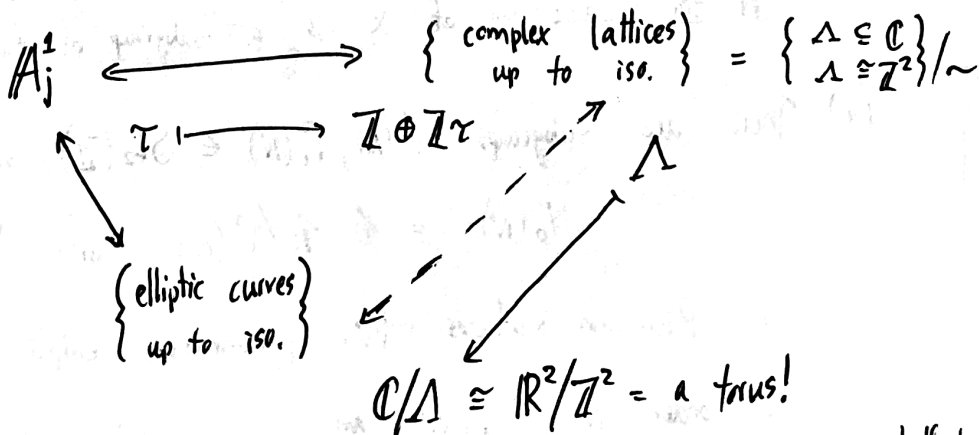 𝔸¹ⱼ ⟷ { complex lattices up to iso. } = { Λ ⊆ ℂ Λ ≅ ℤ² }/∼
τ ⟼ ℤ ⊕ ℤτ
Λ
{ elliptic curves
up to iso. }
ℂ/Λ ≅ ℝ²/ℤ² = a torus!